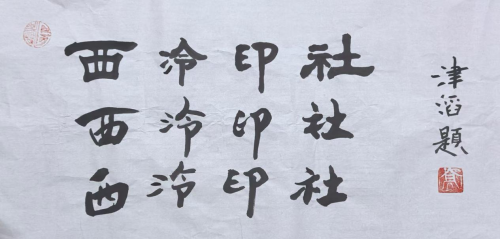 西泠印社
西泠印社
西泠印社
津滔題